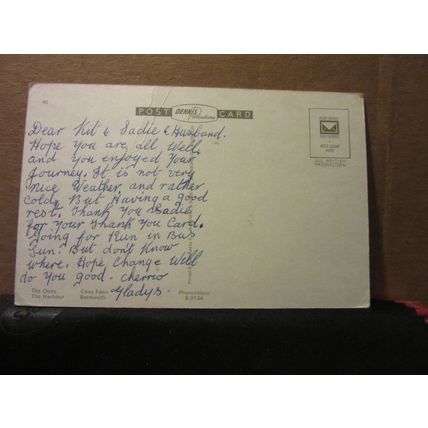 POST DENNIS Productions CARD
Dear Kit & Sadie & Husband.
Hope You are all Well,
and You enjoyed Your
Journey. It is not very
Nice Weather, and rather
Cold, But Having a good
rest. Thank You Sadie
for Your Thank You Card.
Going for Run in Bus
Sun: But don't Know
where. Hope Change Will
do You good. Cherrio
Gladys
ALL BRITISH
PRODUCTION
The Quay
The Harbour
Barmouth
Photocolour